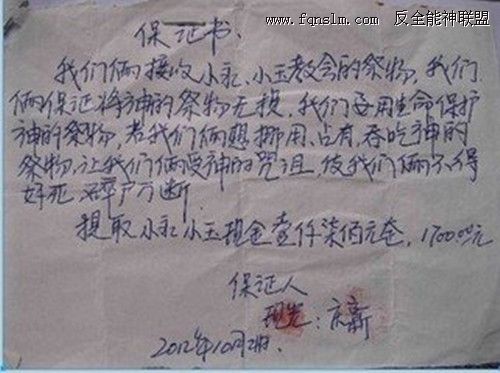 www.fqnslm.com 反全能神联盟
保证书、
我们俩接收小永、小玉教会的祭物，我们
俩保证将神的祭物无损，我们要用生命保护
神的祭物，若我们俩想挪用、占有、吞吃神的
祭物，让我们俩受神的咒诅，使我们俩不得
好死 碎尸万断
提取小永小玉现金壹仟柒佰元整，1700.00元
保证人
：庆新
2012年10月2日、